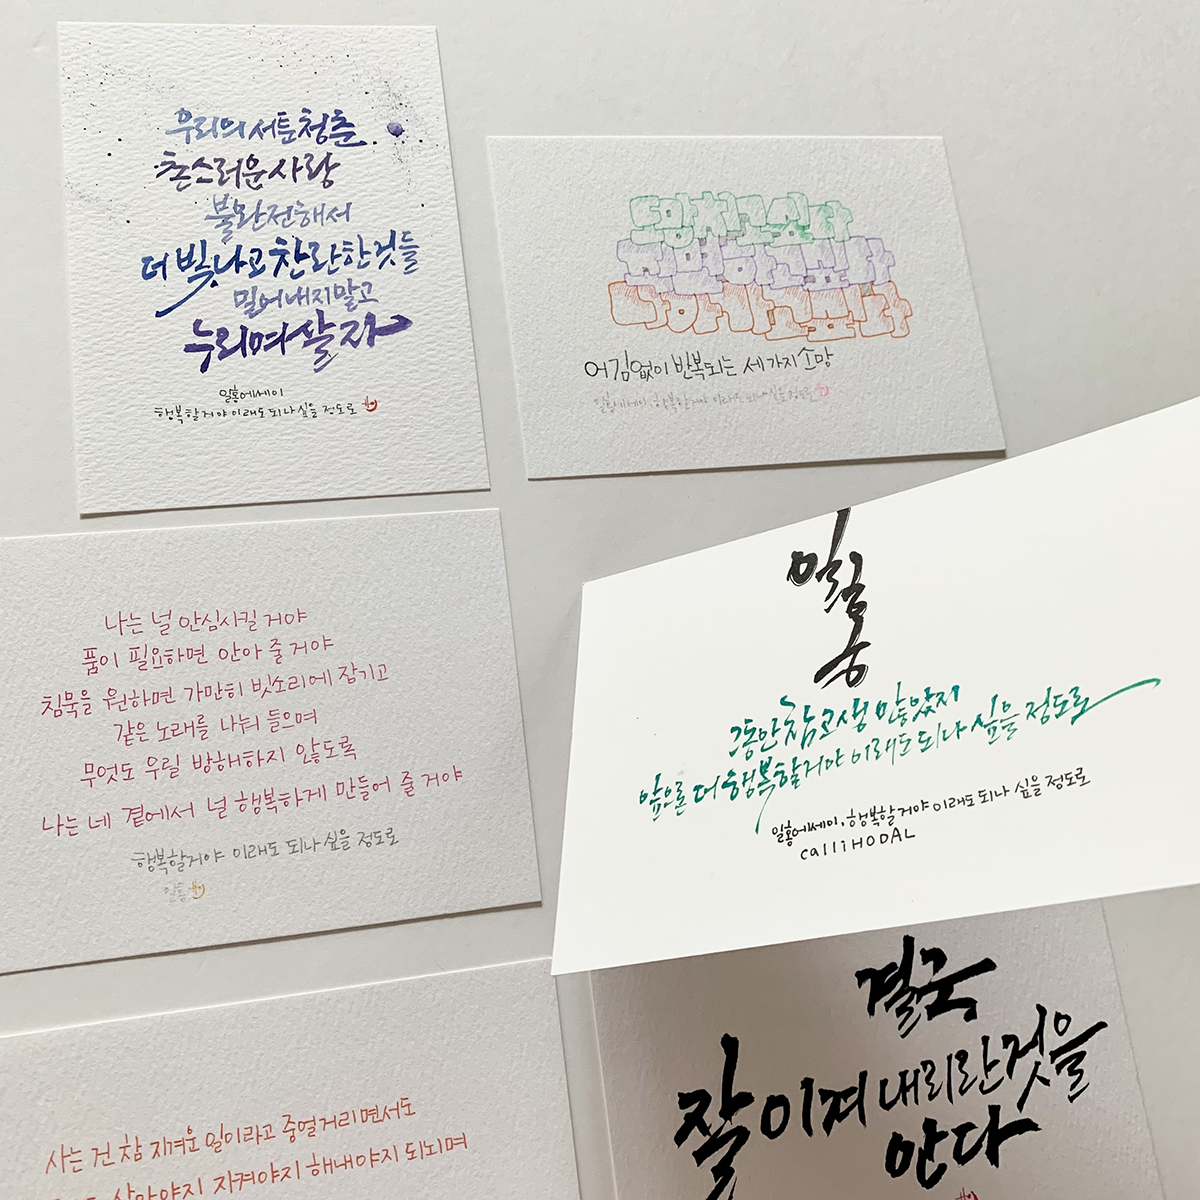 우리의 서툰 청춘
촌스러운 사랑
불완전해서
더 빛나고 찬란한 것들
밀어내지말고
누리며 살자
일홍에세이
행복할거야 이래도 되나 싶을 정도로
도망치고 싶다
어김없이 반복되는 세 가지 소망
일홍에세이. 행복할거야 이래도 되나 싶을 정도로
나는 널 안심시킬 거야
품이 필요하면 안아 줄 거야
침묵을 원하면 가만히 빗소리에 잠기고
같은 노래를 나눠 들으며
무엇도 우릴 방해하지 않도록
나는 네 곁에서 널 행복하게 만들어 줄 거야
행복할거야 이래도 되나 싶을 정도로
일홍
일홍
그동안 참 고생 많았지
앞으론 더 행복할거야 이래도 되나 싶을 정도로
일홍에세이, 행복할거야 이래도 되나 싶을 정도로
calliHODAL
사는 건 참 지겨운 일이라고 중얼거리면서도
살아야지 지켜야지 해내야지 되뇌며
결국
잘 이겨 내리란 것을
안다